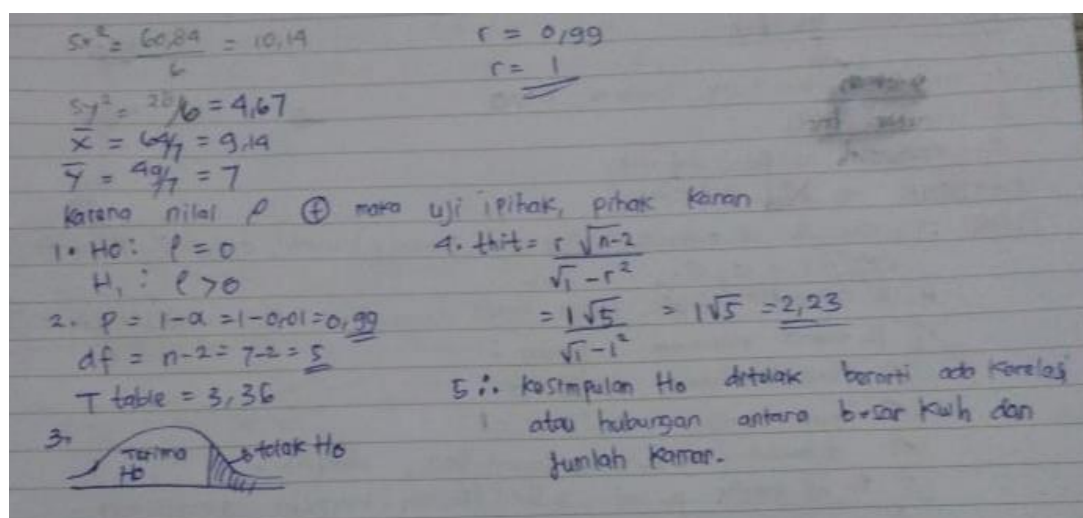 Sx² = 60,84 / 6 = 10,14
Sy² = 28/6 = 4,67
x̄ = 64/7 = 9,14
ȳ = 49/7 = 7
r = 0,99
r = 1
Karena nilai ρ ⊕ maka uji 1 pihak, pihak kanan
1. Ho : ρ = 0
H₁ : ρ > 0
2. P = 1-α = 1-0,01 = 0,99
df = n-2 = 7-2 = 5
T table = 3,36
3.
Terima Ho
tolak Ho
4. thit = r √n-2 / √1-r²
= 1√5 / √1-1² = 1√5 = 2,23
5 ∴ Kesimpulan Ho ditolak berarti ada Korelasi
atau hubungan antara besar Kwh dan
Jumlah Kamar.